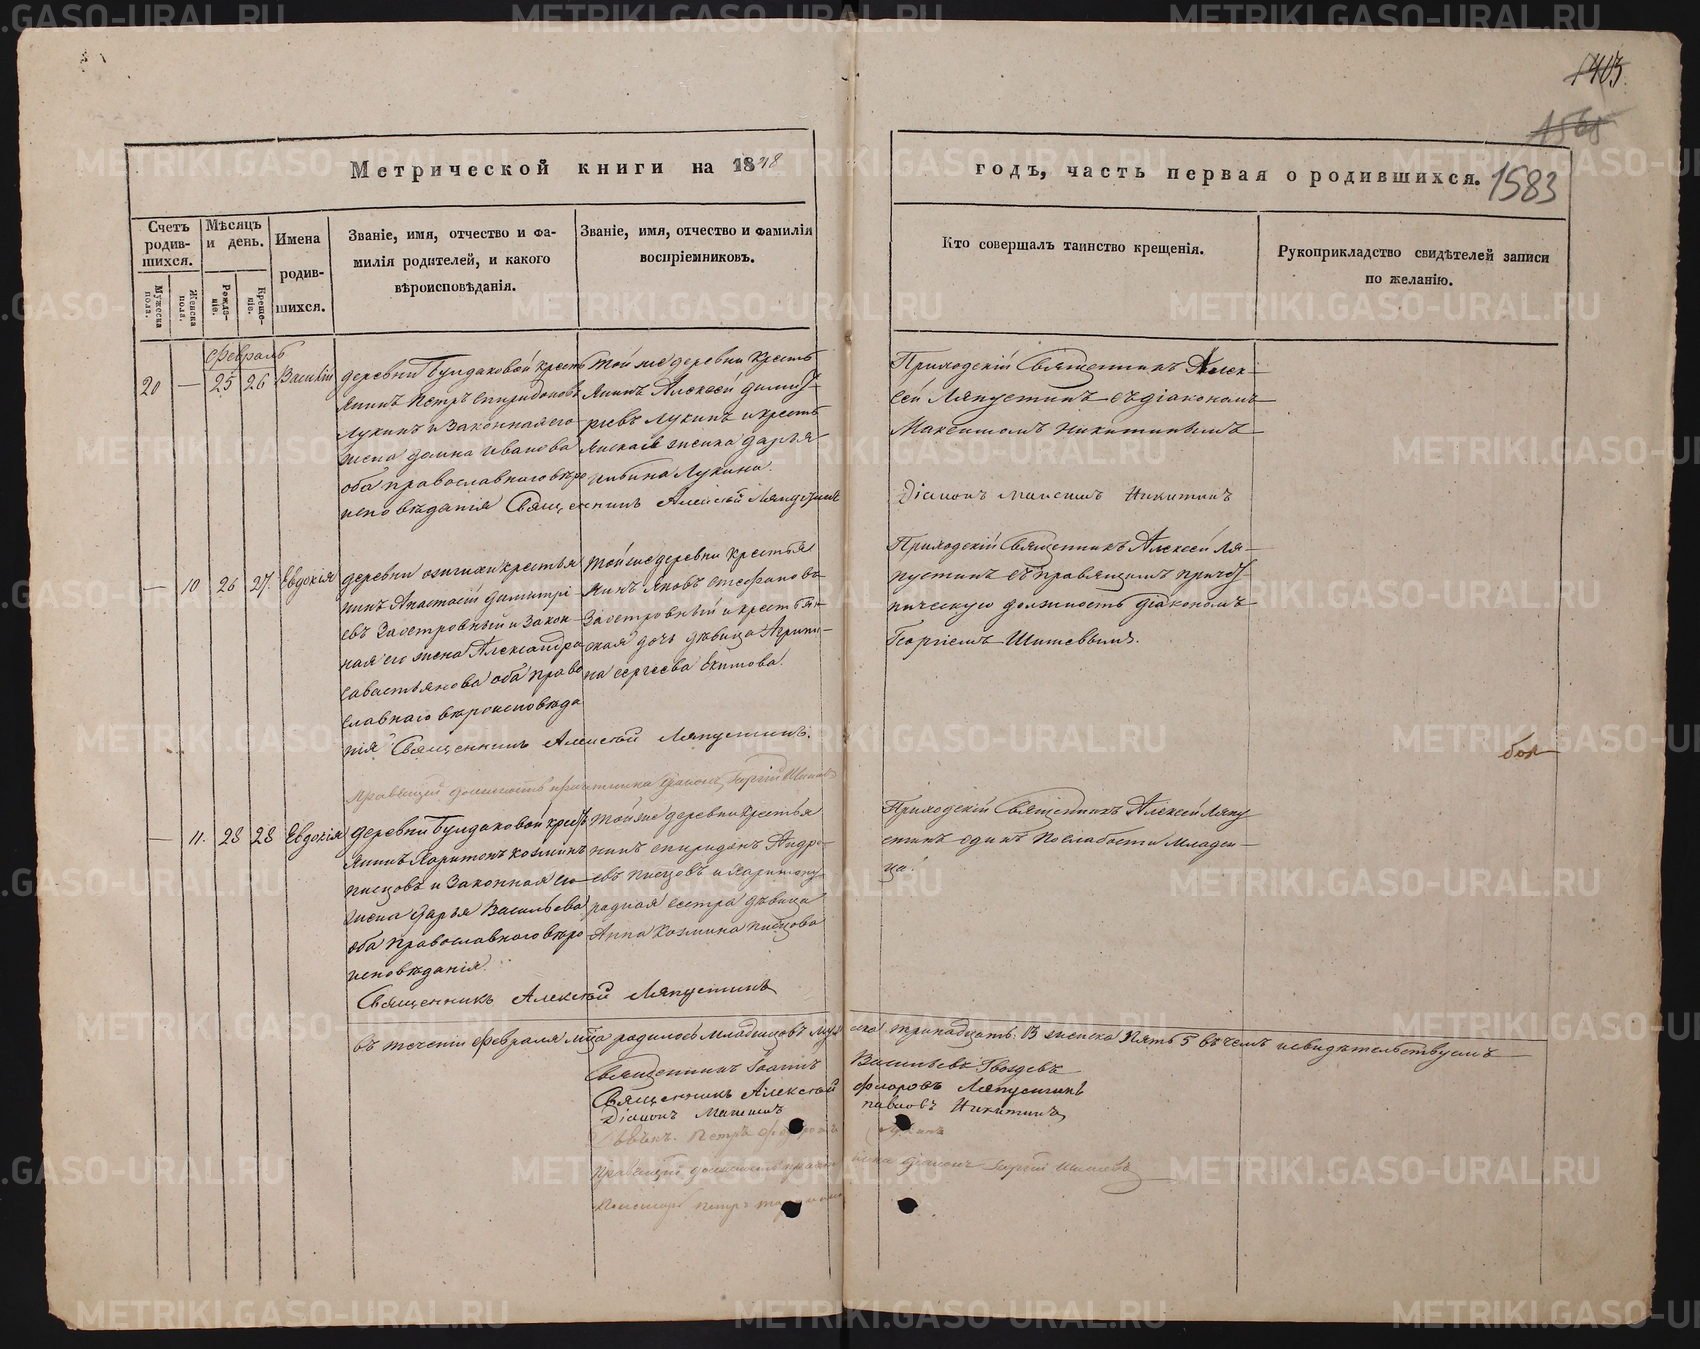 403.
1583
Метрической книги на 1848
годъ, часть первая о родившихся.
Счетъ родив-шихся.
Мѣсяцъ и день.
Имена родив-шихся.
Званіе, имя, отчество и фа-
милія родителей, и какого
вѣроисповѣданія.
Званіе, имя, отчество и фамилія
воспріемниковъ.
Кто совершалъ таинство крещенія.
Рукоприкладство свидѣтелей записи
по желанію.
Мужеска пола.
Женска пола.
Рожде-ніе.
Креще-ніе.
февраль
20 — 25 26 Василій
деревни Булдаковой кресть
янинъ Петръ Спиридоновъ
Лукинъ и Законная его
жена Домна Иванова
оба православнаго вѣро
исповѣданія Священникъ Алексѣй Ляпустинъ
Той же деревни Кресть
янинъ Алексѣй Димит
ріевъ Лукинъ и кресть
янская женка Дарья
Лукина.
Приходскій Священникъ Алек-
сѣй Ляпустинъ съ діакономъ
Максимомъ Никитинымъ
Діаконъ Максимъ Никитинъ
— 10 26 27. Евдокія
деревни крестья
нинъ Анастасій Димитрі-
евъ Заостровный и Закон-
ная его жена Александра
Савастьянова оба право
славнаго вѣроисповѣда
нія Священникъ Алексѣй Ляпустинъ.
Той же деревни крестья
нинъ Яковъ Стефановъ
Заостровный и крестьян-
ская дочь дѣвица Агрипи-
на Сергѣева Екимова.
Приходскій Священникъ Алексѣй Ля-
пустинъ съ правящимъ причет
ническую должность діакономъ
Георгіемъ Шишевымъ.
Правящій должность причетника діаконъ Георгій Шишевъ
боя
— 11. 28 28 Евдокія
деревни Булдаковой кресть
янинъ Харитонъ Козминъ
Писцовъ и Законная его
жена Дарья Васильева
оба православнаго вѣро
исповѣданія.
Священникъ Алексѣй Ляпустинъ
Той же деревни Крестья
нинъ Спиридонъ Андре-
евъ Писцовъ и Харитону
родная сестра дѣвица
Анна Козмина Писцова
Приходскій Священникъ Алексѣй Ляпу
стинъ одинъ по слабости младен-
ца.
въ теченіи февраля мца родилось младенцовъ муж ска тринадцать 13 женска Пять 5 въ чемъ и свидѣтельствуемъ
Священникъ Іоаннъ Васильевъ Гвоздевъ
Священникъ Алексѣй Флоровъ Ляпустинъ
Діаконъ Максимъ Павловъ Никитинъ
Петръ
Правящій должность причет ника діаконъ Георгій Шишевъ
Пономарь Петръ